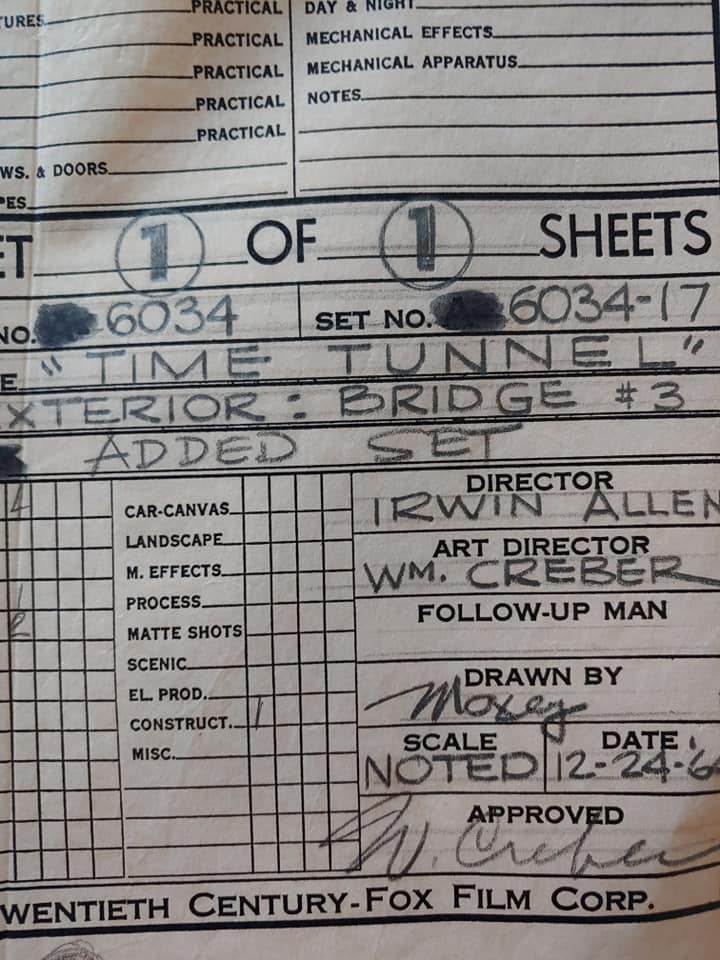 TURES PRACTICAL DAY & NIGHT
PRACTICAL MECHANICAL EFFECTS
PRACTICAL MECHANICAL APPARATUS
PRACTICAL NOTES
PRACTICAL
WS. & DOORS
PES
ET 1 OF 1 SHEETS
NO. 6034 SET NO. 6034-17
E "TIME TUNNEL"
EXTERIOR: BRIDGE #3
ADDED SET
DIRECTOR
CAR-CANVAS IRWIN ALLEN
LANDSCAPE ART DIRECTOR
M. EFFECTS WM. CREBER
PROCESS FOLLOW-UP MAN
2 MATTE SHOTS
SCENIC DRAWN BY
EL. PROD. Moxey
CONSTRUCT. 1
MISC. SCALE DATE
NOTED 12-24-6
APPROVED
W. Creber
WENTIETH CENTURY-FOX FILM CORP.